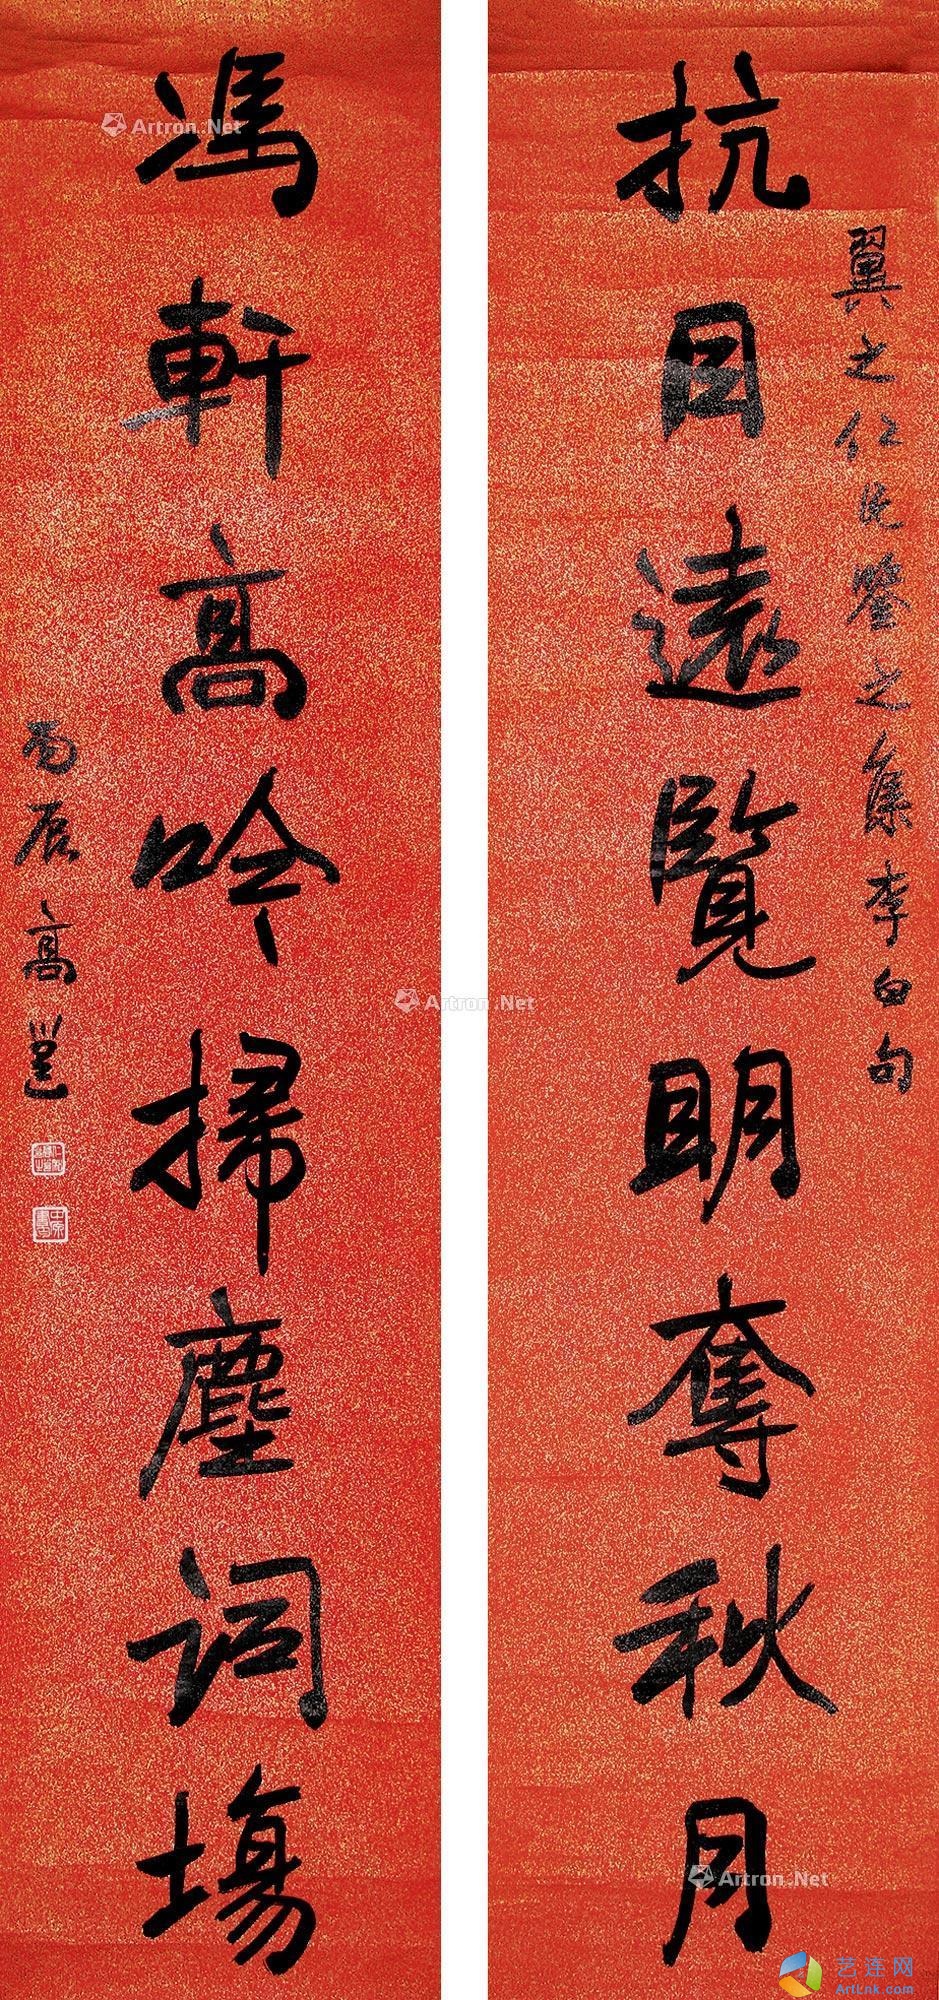 抗目遠覽明奪秋月
翼之仁兄鑒之集李白句
馮軒高吟掃塵詞場
丙辰高邕
Artron.Net
Artron.Net
Artron.Net
艺连网
ArtLnk.com